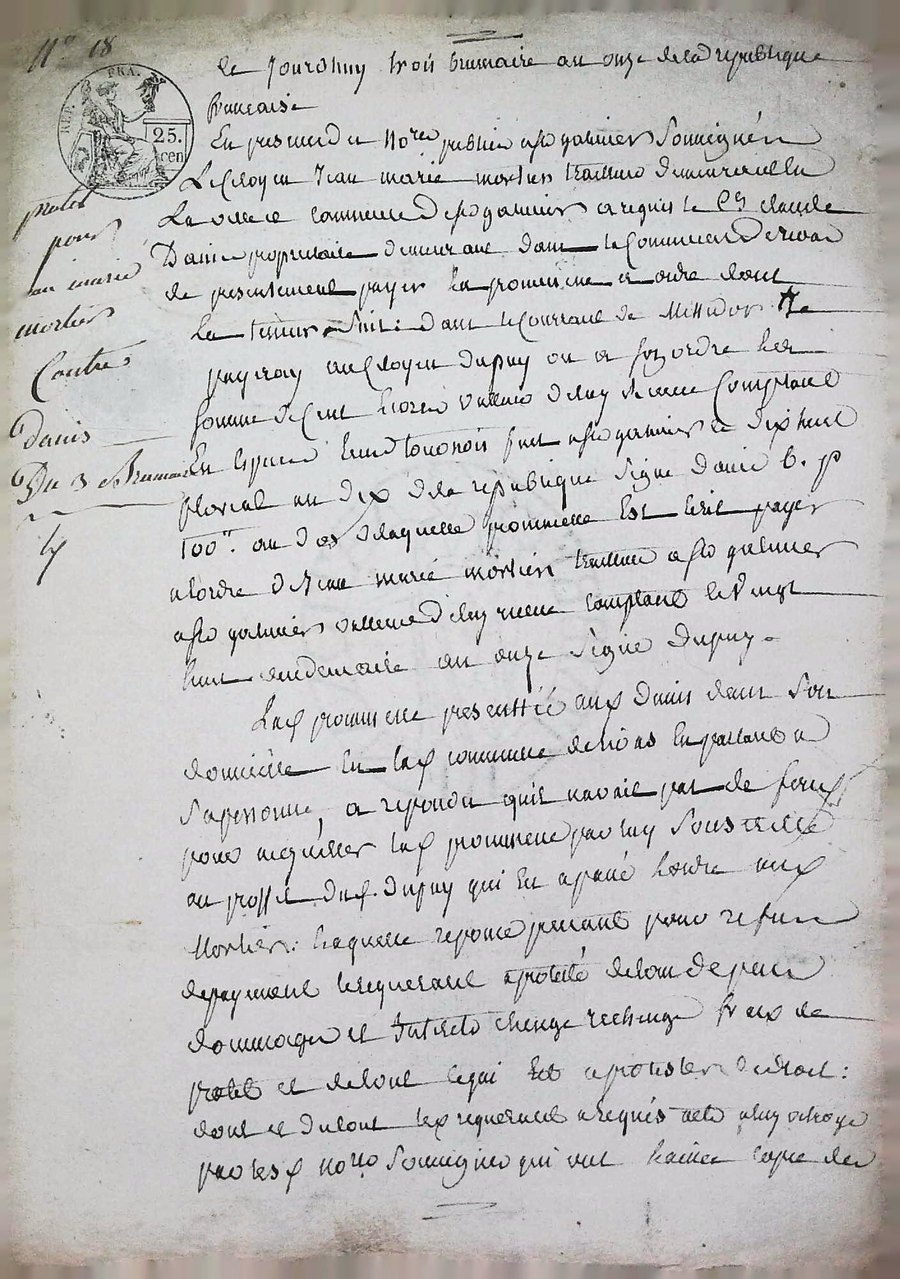 N.o 18
REP. FRA.
25. cen
protet
pour
marie
mortier
Contre
Danis
Du 3 Brumaire
Ce Jourdhuy trois brumaire an onze de la republique
francaise
En presence de Nores publics a St galmier Soussignés
Le Citoyen Jean marie mortier traitteur demeurant en
La ville et commune de St galmier a requis le Cn claude
Danis proprietaire demeurant dans la Commune de
de presentement payer la promesse a ordre dont
La teneur Suit: dans le Courrant de Messidor Je
payeray au Citoyen dupuy ou a son ordre la
somme de Cent livres valleur de luy receue Comptant
En Especes tournois fait a St galmier le dixhuit
floreal an dix de la republique signé danis b. p
100# au dos de laquelle promesse Est Ecrit payer
a lordre de Jean marie mortier traitteur a St galmier
a St galmier valleur de luy receue comptant le vingt
huit vendemiaire an onze Signé dupuy.
Lad promesse presentée aud danis dans son
domicille En lad commune de En parlant a
Sa personne, a repondu quil navait pas de fonds
pour acquitter lad promesse par luy Souscritte
au proffit dud. dupuy qui En a passé lordre aud
Mortier: laquelle reponce prenant pour refus
de payment le requerant a protesté de tous depens
dommages et Interets change rechange frais de
protet et de tout ce qui Est a protester de droit:
dont et du tout led requerant a requis acte a luy octroyé
par lesd nores Soussignés qui ont laissé copie des